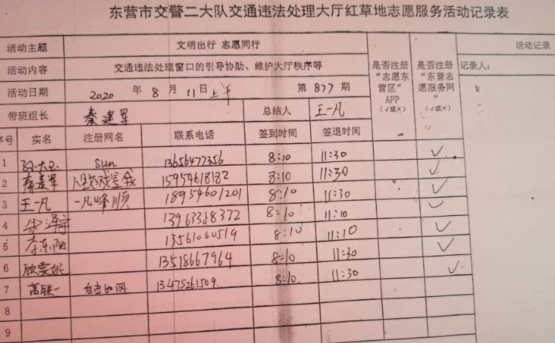 东营市交警二大队交通违法处理大厅红草地志愿服务活动记录表
活动主题 文明出行 志愿同行
活动内容 交通违法处理窗口的引导协助、维护大厅秩序等
活动日期 2020 年 8 月 11 上午 第 877 期
是否注册“志愿东营区”APP（√或×）
是否注册“东营志愿服务网”（√或×）
活动记录
记录人：
带班组长 秦建军 总结人 王一凡
序号 实名 注册网名 联系电话 签到时间 签退时间
1 Sun 13656477356 8:10 11:30 ✓
2 秦建军 15954618182 8:10 11:30 ✓
3 王一凡 一凡峰顺 18954601201 8:10 11:30 ✓
4 13963358372 8:10 11:10 ✓
5 李东阳 13561060519 8:10 11:10 ✓
6 13518667964 8:10 11:30 ✓
7 13475261509 8:10 11:30 ✓
8
9